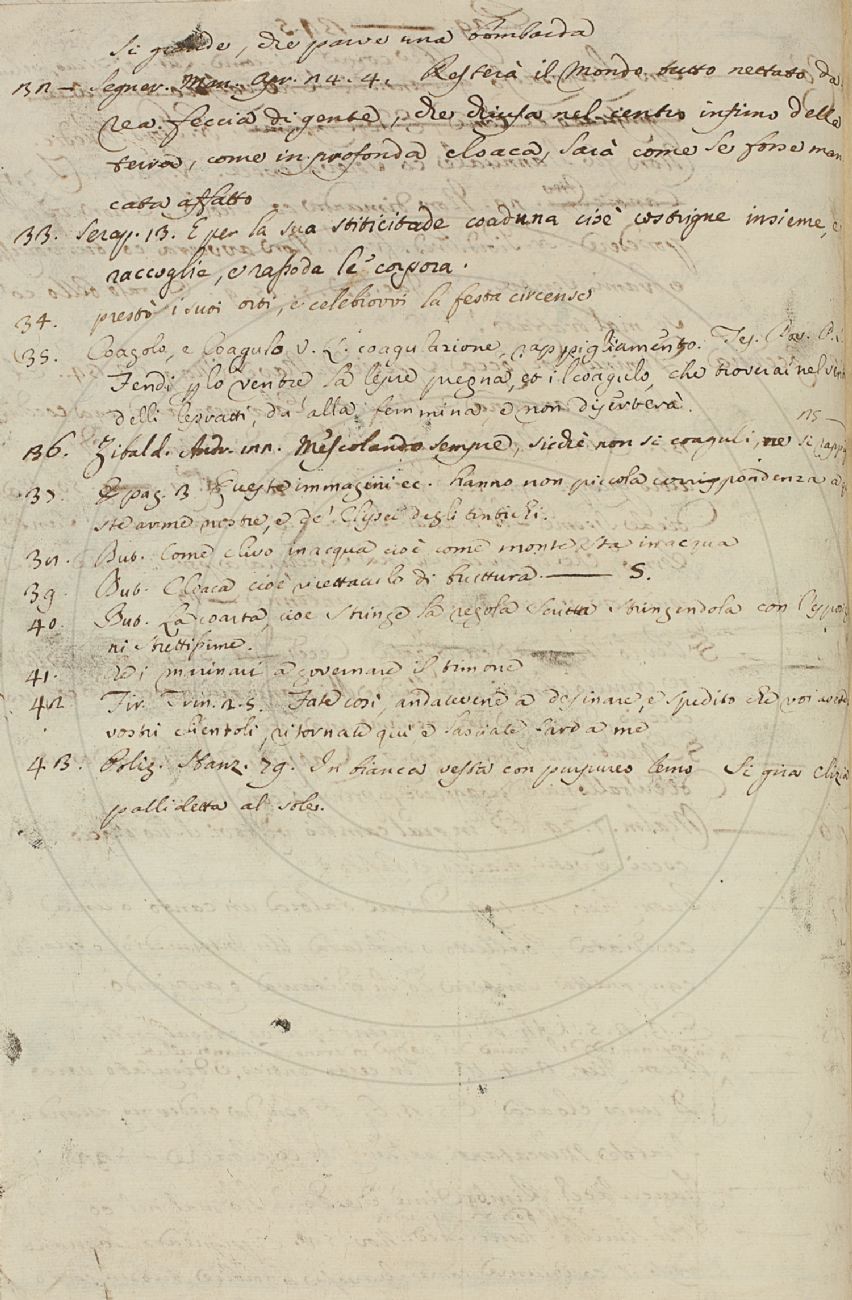 si grande, che parve una bombarda
132 — Segner. Mm. Apr. 24. 4. Resterà il Mondo tutto nettato da
rea feccia di gente, che chiusa nel centro infimo della
terra, come in profonda cloaca, sarà come se fosse man
cata affatto
33. Serap. 13. E per la sua stiticitade coaduna cioè costrigne insieme, e
raccoglie, e rassoda le corpora.
34. prestò i suoi orti, e celebrovvi la festa circense
35. Coagolo, e Coagulo V. L. coagulazione, rappigliamento. Tes. Pov. P.
Fendi plo ventre la lepre pregna, ed il coagulo, che troverai nel vent
delli lepratti, dà alla femmina, e non disperderà.
136. Zibald. Andr. 122. Mescolando sempre, sicchè non si coaguli, ne si rappi
37. pag. 3 Queste immagini ec. hanno non piccola corrispondenza a
ste arme nostre, e de' Clipei degli antichi.
38. But. Come clivo in acqua cioè come monte sta in acqua
39. But. Cloaca cioè ricettacolo di bruttura. — S.
40. But. La coarta, cioe stringe la regola scritta stringendola con l'espos
ni strettissime.
41. de i marinari a governare il timone
42. Fir. Trin. 2. 5. Fate così, andatevene a desinare, e spedito che voi avete
vostri clientoli, ritornate qui e lasciate fare a me
43. Poliz. Stanz. 79. In bianca vesta con purpureo lembo Si gira Clizia
pallidetta al sole.